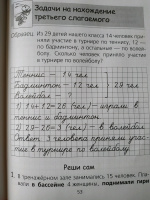 Задачи на нахождение
третьего слагаемого
Образец. Из 29 детей нашего класса 14 человек при-
няли участие в турнире по теннису, 12 —
по бадминтону, а остальные — по волей-
болу. Сколько человек приняли участие
в турнире по волейболу?
Теннис — 14 чел.
Бадминтон — 12 чел. 29 чел.
Волейбол —
1) 14+12=26 (чел) — играли в
теннис и бадминтон
2) 29-26=3 (чел) — в волейбол
Ответ: 3 человека приняли участ-
ие в турнире по волейболу.
Реши сам
1. В тренажёрном зале занимались 15 человек. Пла-
вали в бассейне 4 женщины, поднимали гири
53